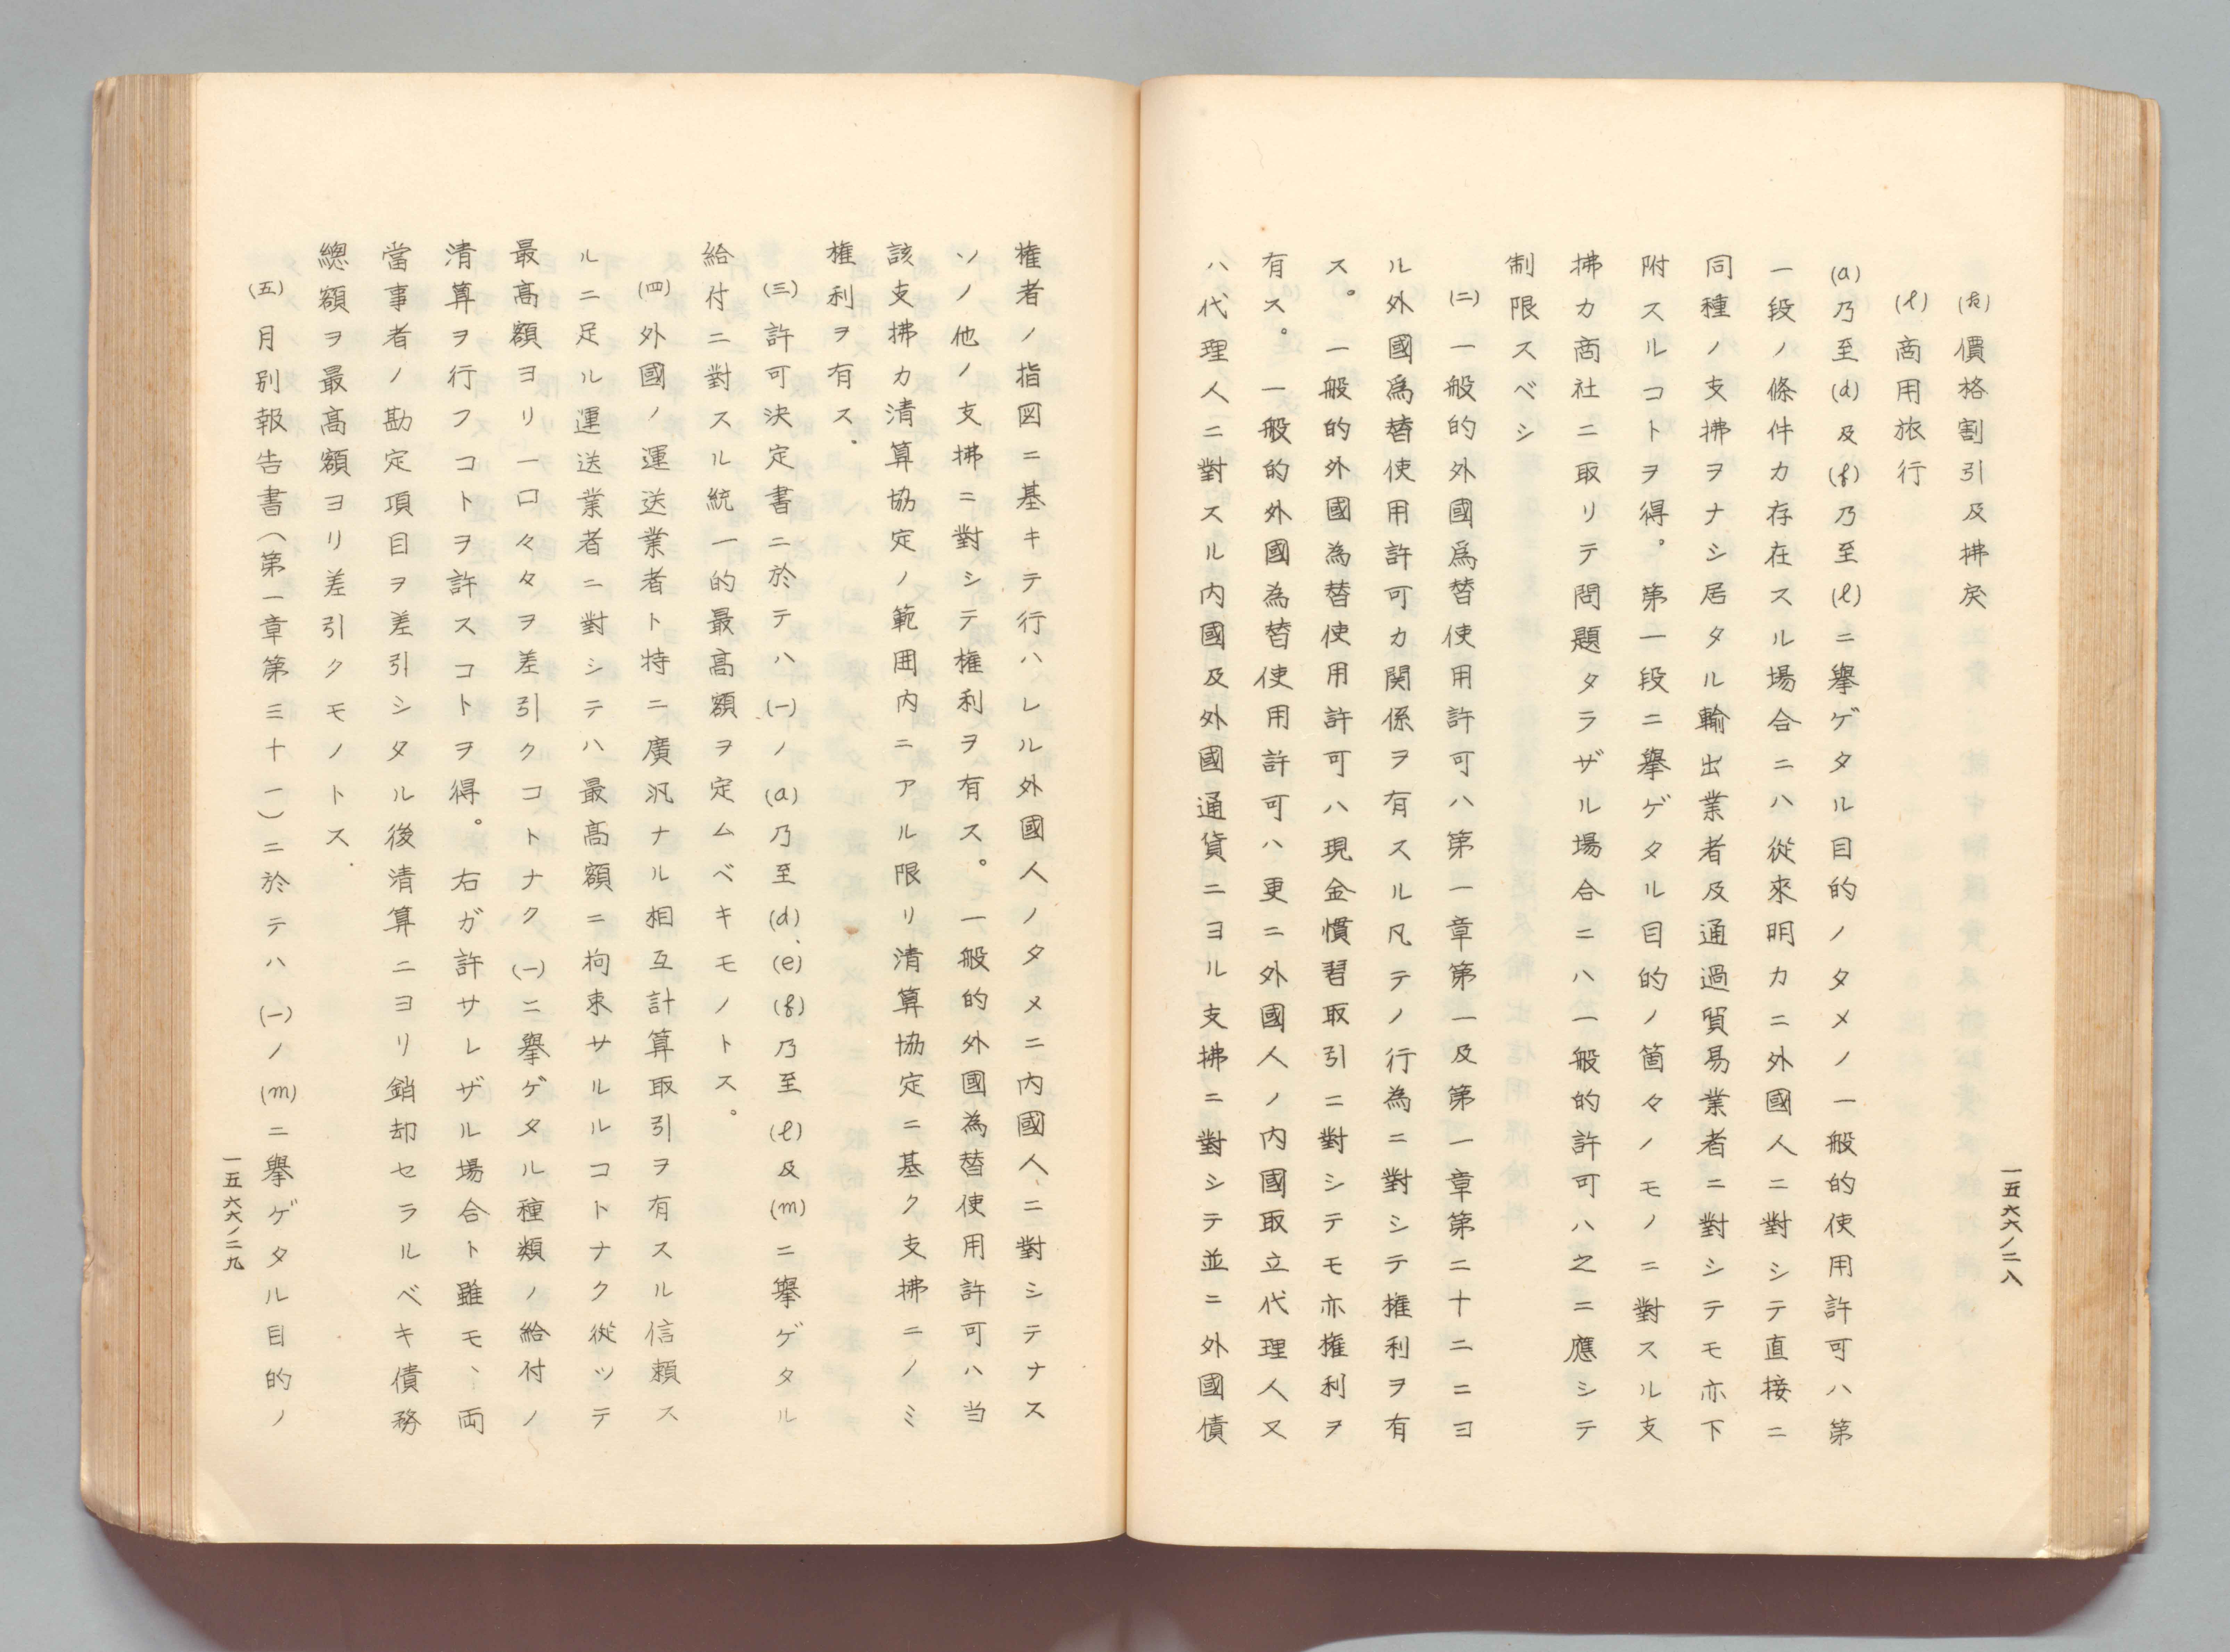 一五六六ノ二八
(k)價格割引及拂戾
(l)商用旅行
(a)乃至(d)及(f)乃至(l)ニ擧ゲタル目的ノタメノ一般的使用許可ハ第
一段ノ條件カ存在スル場合ニハ從來明カニ外國人ニ對シテ直接ニ
同種ノ支拂ヲナシ居タル輸出業者及通過貿易業者ニ對シテモ亦下
附スルコトヲ得。第一段ニ擧ゲタル目的ノ箇々ノモノニ對スル支
拂カ商社ニ取リテ問題タラザル場合ニハ一般的許可ハ之ニ應シテ
制限スベシ
(二)一般的外國爲替使用許可ハ第一章第一及第一章第二十二ニヨ
ル外國爲替使用許可カ関係ヲ有スル凡テノ行為ニ對シテ權利ヲ有
ス。一般的外國為替使用許可ハ現金慣習取引ニ對シテモ亦權利ヲ
有ス。一般的外國為替使用許可ハ更ニ外國人ノ内國取立代理人又
ハ代理人ニ對スル内國及外國通貨ニヨル支拂ニ對シテ並ニ外國債
權者ノ指図ニ基キテ行ハレル外國人ノタメニ内國人ニ對シテナス
ソノ他ノ支拂ニ對シテ權利ヲ有ス。一般的外國為替使用許可ハ当
該支拂カ清算協定ノ範囲内ニアル限リ清算協定ニ基ク支拂ニノミ
權利ヲ有ス.
(三)許可決定書ニ於テハ(一)ノ(a)乃至(d)、(e)(f)乃至(l)及(m)ニ擧ゲタル
給付ニ對スル統一的最高額ヲ定ムベキモノトス。
(四)外國ノ運送業者ト特ニ廣汎ナル相互計算取引ヲ有スル信頼ス
ルニ足ル運送業者ニ對シテハ最高額ニ拘束サルルコトナク從ツテ
最高額ヨリ一口々々ヲ差引クコトナク(一)ニ擧ゲタル種類ノ給付ノ
清算ヲ行フコトヲ許スコトヲ得。右ガ許サレザル場合ト雖モ、両
當事者ノ勘定項目ヲ差引シタル後清算ニヨリ銷却セラルベキ債務
總額ヲ最高額ヨリ差引クモノトス.
(五)月別報告書(第一章第三十一)ニ於テハ(一)ノ(m)ニ擧ゲタル目的ノ
一五六六ノ二九